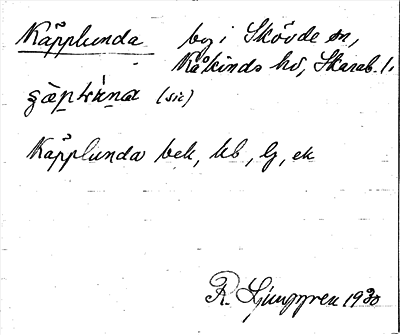 Käpplunda by i Skövde sn,
Kåkinds hd, Skarab. l,
(sic)
Käpplunda bek, kb, lg, ek
R. Ljunggren 1930